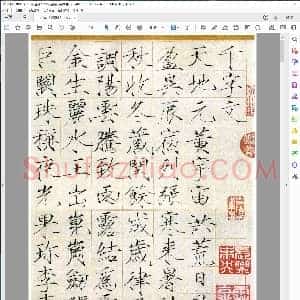 千字文
天地元黃宇宙洪荒日
盈昃辰宿列張寒來暑
秋收冬藏閏餘成歲律
調陽雲騰致雨露結為
金生麗水玉出崑崗劍
巨闕珠稱夜光果珍李
Shufaziliao.COM